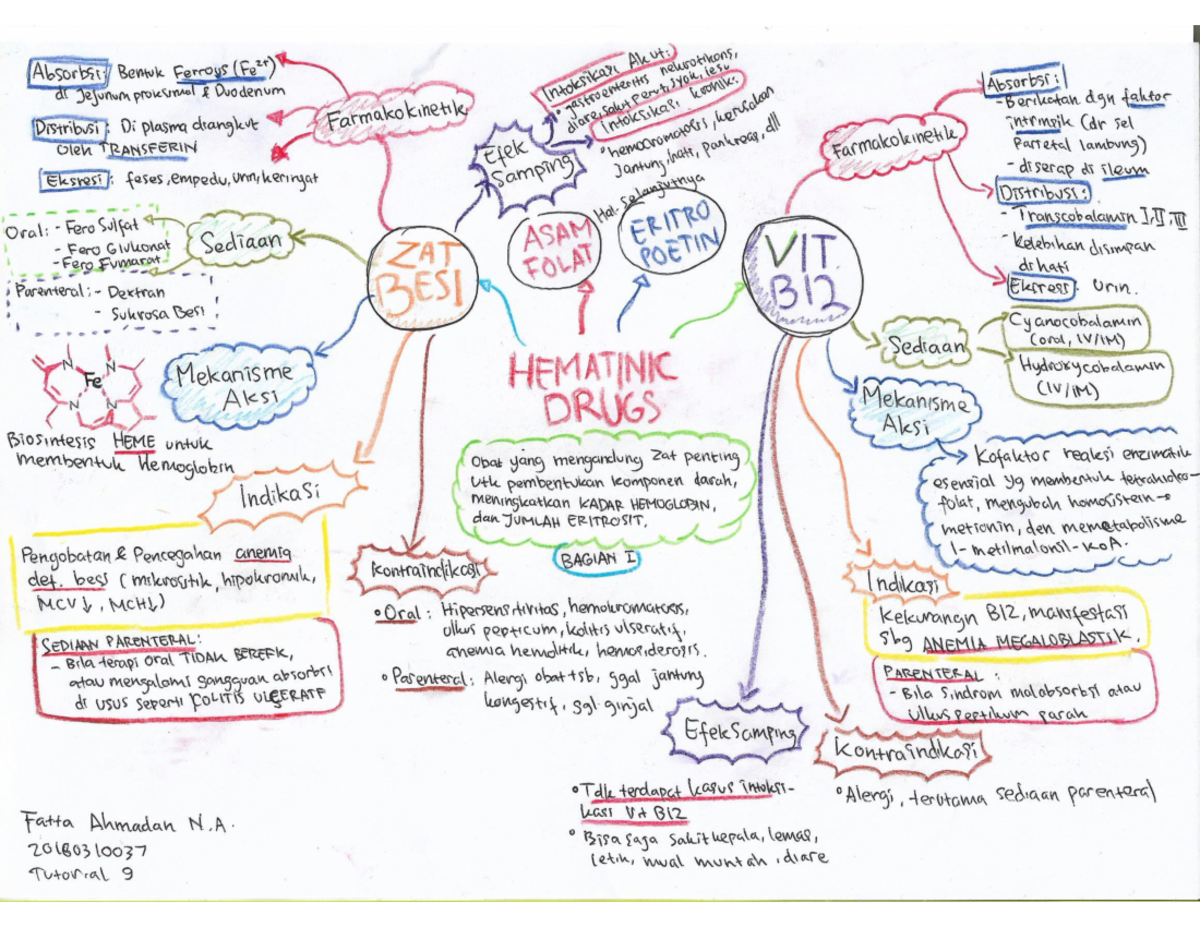 HEMATINIC
DRUGS
Obat yang mengandung zat penting
utk pembentukan komponen darah,
meningkatkan KADAR HEMOGLOBIN,
dan JUMLAH ERITROSIT.
BAGIAN I
ZAT
BESI
Farmakokinetik
Absorbsi: Bentuk Ferrous (Fe2+)
di Jejunum proksimal & Duodenum
Distribusi: Di plasma diangkut
oleh TRANSFERIN
Eksresi: feses, empedu, urin, keringat
Sediaan
Oral: - Fero Sulfat
- Fero Glukonat
- Fero Fumarat
Parenteral: - Dextran
- Sukrosa Besi
Mekanisme
Aksi
N N
Fe
N N
Biosintesis HEME untuk
membentuk Hemoglobin
Indikasi
Pengobatan & Pencegahan anemia
def. besi (mikrositik, hipokromik,
MCV↓, MCH↓)
SEDIAAN PARENTERAL:
- Bila terapi oral TIDAK BEREFK,
atau mengalami gangguan absorbsi
di usus seperti
Kontraindikasi
• Oral: Hipersensitivitas, hemokromatosis,
ulkus pepticum, kolitis ulseratif,
anemia hemolitik, hemosiderosis.
• Parenteral: Alergi obat tsb, ggal jantung
kongestif, ggl ginjal
Efek
Samping
Intoksikasi Akut:
• gastroenteritis nekrotikans,
diare, sakit perut, syok, lesu
Intoksikasi kronik:
• hemocromatosis, kerusakan
Jantung, hati, pankreas, dll
ASAM
FOLAT
Hal. Selanjutnya
ERITRO
POETIN
VIT.
B12
Farmakokinetik
Absorbsi:
- Berikatan dgn faktor
intrinsik (dr sel
Parietal lambung)
- diserap di ileum
Distribusi:
- Transcobalamin I, II, III
- Kelebihan disimpan
di hati
Ekskresi: Urin.
Sediaan
Cyanocobalamin
(oral, IV/IM)
Hydroxycobalamin
(IV/IM)
Mekanisme
Aksi
Kofaktor reaksi enzimatik
esensial yg membentuk tetrahidro-
folat, mengubah homosistein→
metionin, dan memetabolisme
l-metilmalonil-KoA.
Indikasi
Kekurangn B12, manifestasi
sbg ANEMIA MEGALOBLASTIK.
PARENTERAL:
- Bila Sindrom malabsorbsi atau
Ulkus Peptikum parah
Efek Samping
• Tdk terdapat kasus intoksi-
kasi Vit B12
• Bisa saja sakit kepala, lemas,
letih, mual muntah, diare
Kontraindikasi
• Alergi, terutama sediaan parenteral
Fatta Ahmadan N.A.
20180310037
Tutorial 9